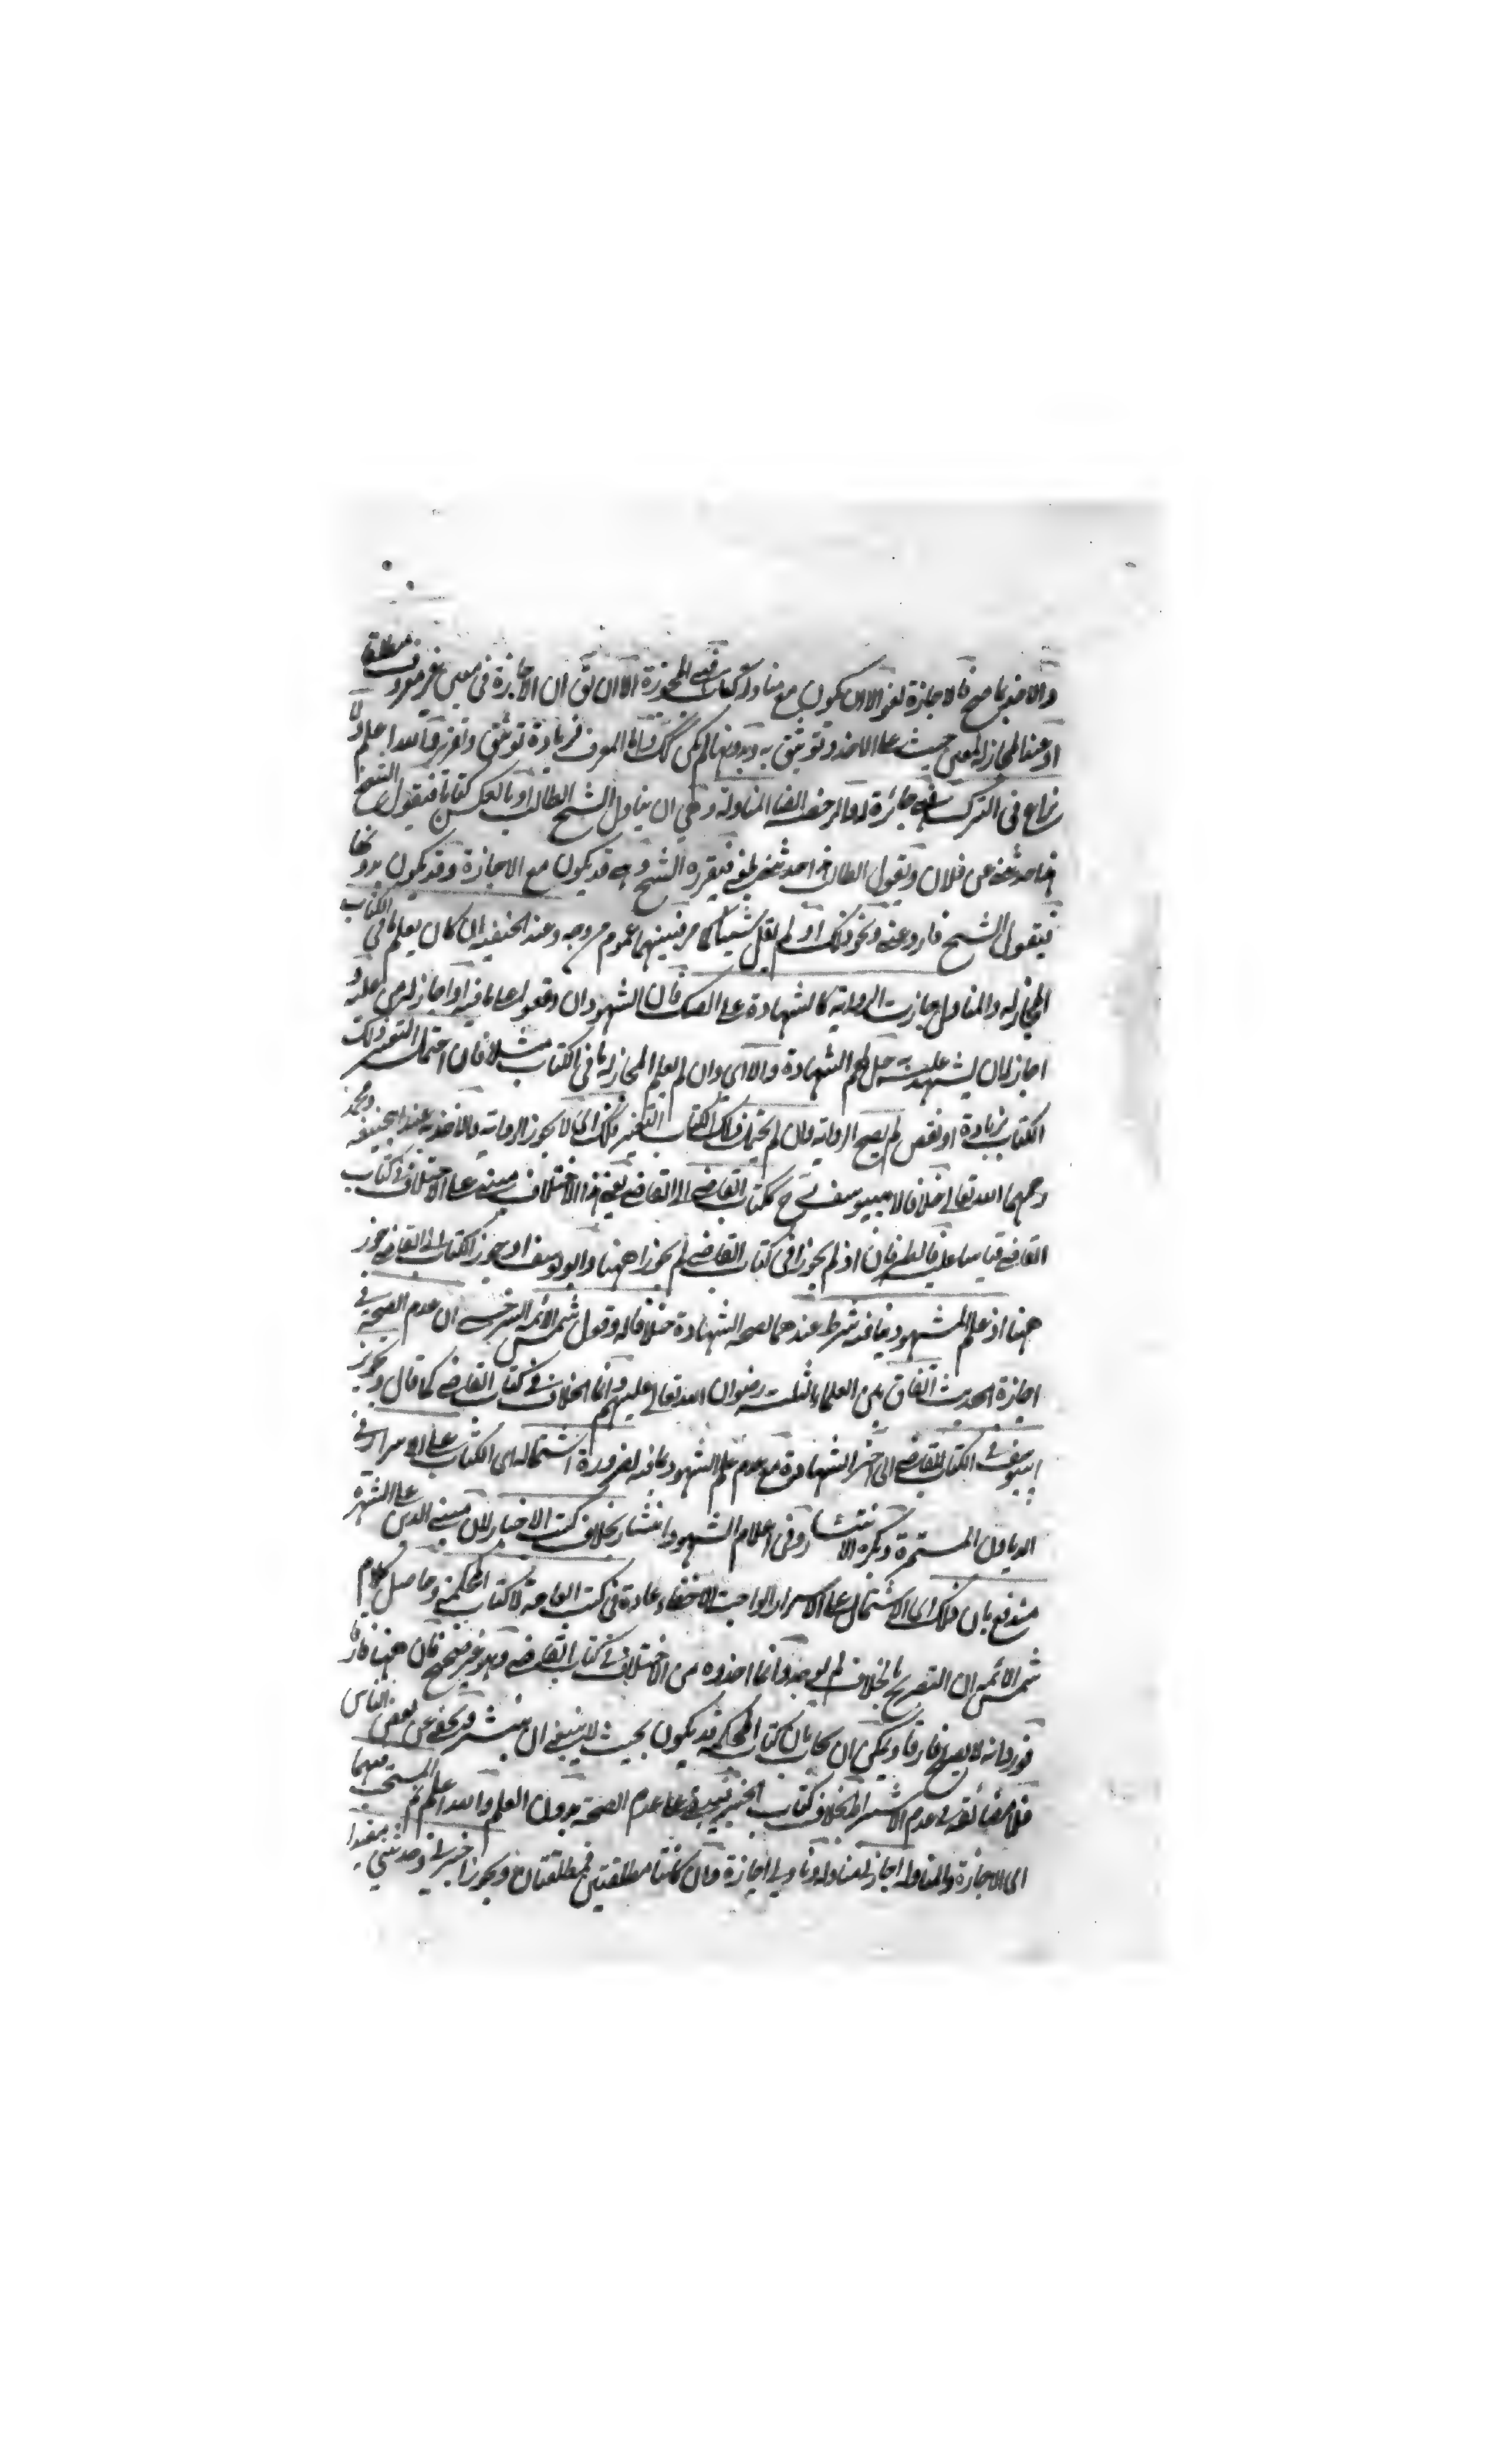 والاخذ بما صح فالاجازة لغو الا ان يكون مع مناولة كتاب فيه المجوزة الا ان يق ان الاجازة في معين غير معروف مطلقا
او عند المجاز له المعين حيث على الاخذ وتوثيق به وبدونها لم يكن كك واما المعرف فزيادة توثيق وتقرير والله اعلم ولا
نزاع في التبرك فانه جائزة له والرخصة ايضا المناولة وهي ان يناول الشيخ الطالب او بالعكس كتابا فيقول الشيخ
هذا حدثنيه عن فلان ويقول الطالب احدثنيه فيقرره الشيخ وهي قد يكون مع الاجازة وقد يكون بدونها
فيقول الشيخ فاروه عنه ونحو ذلك او لم يقل شيئا كما مر فبينهما عموم من وجه وعند الحنفية ان كان يعلم ما في الكتاب
المجاز له والمناول جازت الرواية كالشهادة على الصك فان الشهود ان وقفوا على ما فيه او اجاز له من عليه و
اجاز بان يشهد عليه به حل لهم الشهادة والا اي وان لم يعلم المجاز له ما في الكتاب مثلا فان احتمل التغير ذلك
الكتاب بزيادة او نقص لم يصح الرواية وان لم يحتمل ذلك الكتاب التغير فكذلك اي لا يجوز الرواية والاخذ به عند ابيحنيفة ومحمد
رحمهما الله تعالى خلافا لابييوسف رح ككتاب القاضي الى القاضي يعني هذا الاختلاف مبني على الاختلاف في كتاب
القاضي قياسا عليه فالطرفان اذ لم يجوزا في كتاب القاضي لم يجوزا ههنا وابو يوسف اذ جوز الكتاب الى القاضي جوز
ههنا اذ علم الشهود بما فيه شرط عندهما لصحة الشهادة خلافا له وقول شمس الائمة السرخسي ان عدم الصحة في
اجازة الحديث اتفاق بين العلماء الثلثة رضوان الله تعالى عليهم وانما الخلاف في كتاب القاضي كما قال وتجويز
ابييوسف في الكتاب للقاضي الى اخر الشهادة مع عدم علم الشهود بما فيه لضرورة اشتماله اي الكتاب على الاسرار في
الدياول المستمرة ويكره الانتشار وفي اعلام الشهود انتشار بخلاف كتب الاخبار لان مبنى الدين على الشهرة
مندفع بان ذلك اي الاشتمال على الاسرار الواجب الاخفاء عادة في كتب العامة لا كتاب المحكمة وحاصل كلام
شمس الائمة ان التصريح بالخلاف لم يوجد وانما اخذوه من الاختلاف في كتاب القاضي وهو غير صحيح فان ههنا فارقا
فورد انه لا يصلح فارقا ويمكن ان يجاب بان كتاب المحكمة قد يكون بحيث لا ينبغي ان ينتشر فيخفى عن بعض الناس
فلا مضائقة في عدم الاشتراط بخلاف كتاب الخبر فيبقى على عدم الصحة بدون العلم والله اعلم ثم المستحب فيهما
اي الاجازة والمناولة اجاز لي وناولني اجازة وان كانتا مطلقتين فمطلقتان ويجوز اخبرني وحدثني مقيدا